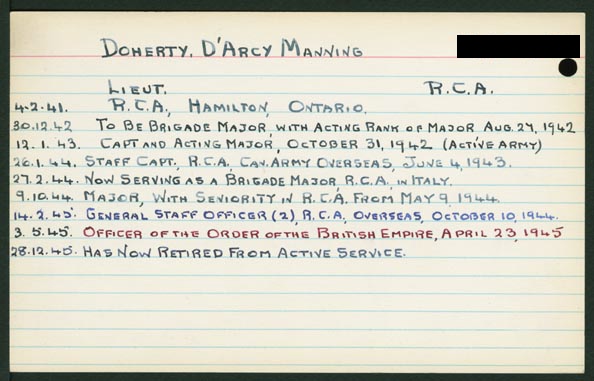 DOHERTY, D'ARCY MANNING
LIEUT. R.C.A.
4.2.41. R.C.A., HAMILTON, ONTARIO.
30.12.42 TO BE BRIGADE MAJOR, WITH ACTING RANK OF MAJOR AUG. 27, 1942
12.1.43. CAPT AND ACTING MAJOR, OCTOBER 31, 1942 (ACTIVE ARMY)
26.1.44. STAFF CAPT., R.C.A. CAN. ARMY OVERSEAS, JUNE 4, 1943.
27.2.44. NOW SERVING AS A BRIGADE MAJOR R.C.A. IN ITALY.
9.10.44. MAJOR, WITH SENIORITY IN R.C.A. FROM MAY 9, 1944.
14.2.45. GENERAL STAFF OFFICER (2), R.C.A., OVERSEAS, OCTOBER 10, 1944.
3.5.45. OFFICER OF THE ORDER OF THE BRITISH EMPIRE, APRIL 23, 1945
28.12.45. HAS NOW RETIRED FROM ACTIVE SERVICE.